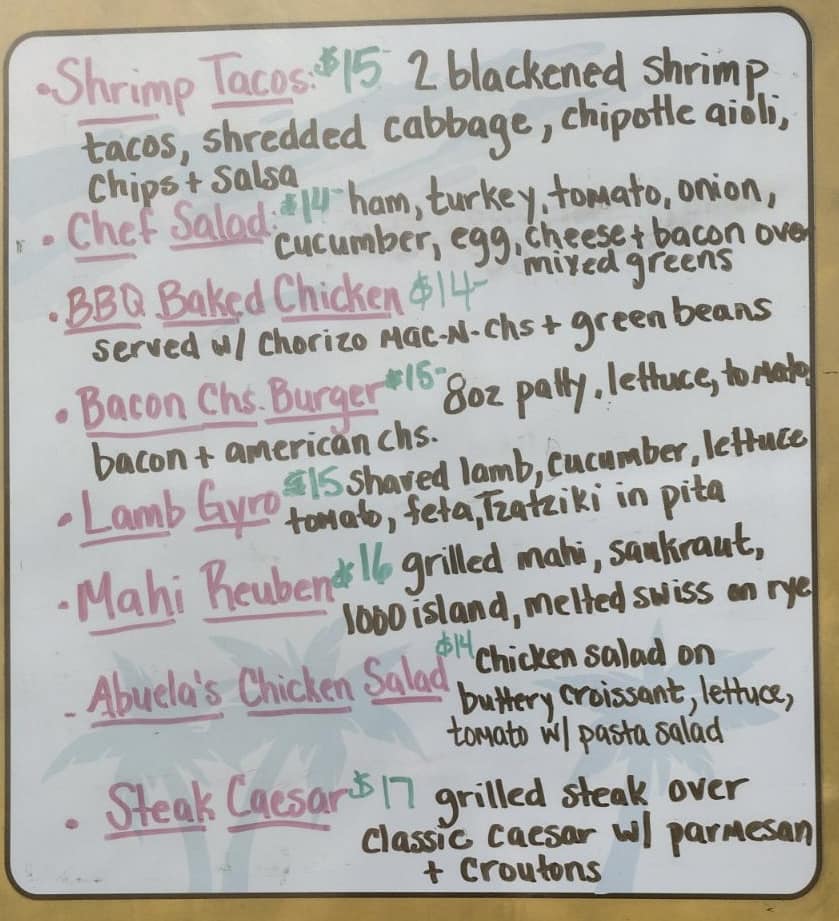 • Shrimp Tacos: $15- 2 blackened shrimp
tacos, shredded cabbage, chipotle aioli,
Chips + Salsa
• Chef Salad: $14- ham, turkey, tomato, onion,
cucumber, egg, cheese + bacon over
mixed greens
• BBQ Baked Chicken $14-
served w/ Chorizo Mac-N-Chs + green beans
• Bacon Chs. Burger $15- 8oz patty, lettuce, tomato,
bacon + american chs.
• Lamb Gyro $15 shaved lamb, cucumber, lettuce
tomato, feta, Tzatziki in pita
• Mahi Reuben $16 grilled mahi, saukraut,
1000 island, melted swiss on rye
- Abuela's Chicken Salad $14 Chicken salad on
buttery croissant, lettuce,
tomato w/ pasta salad
• Steak Caesar $17 grilled steak over
classic caesar w/ parmesan
+ croutons